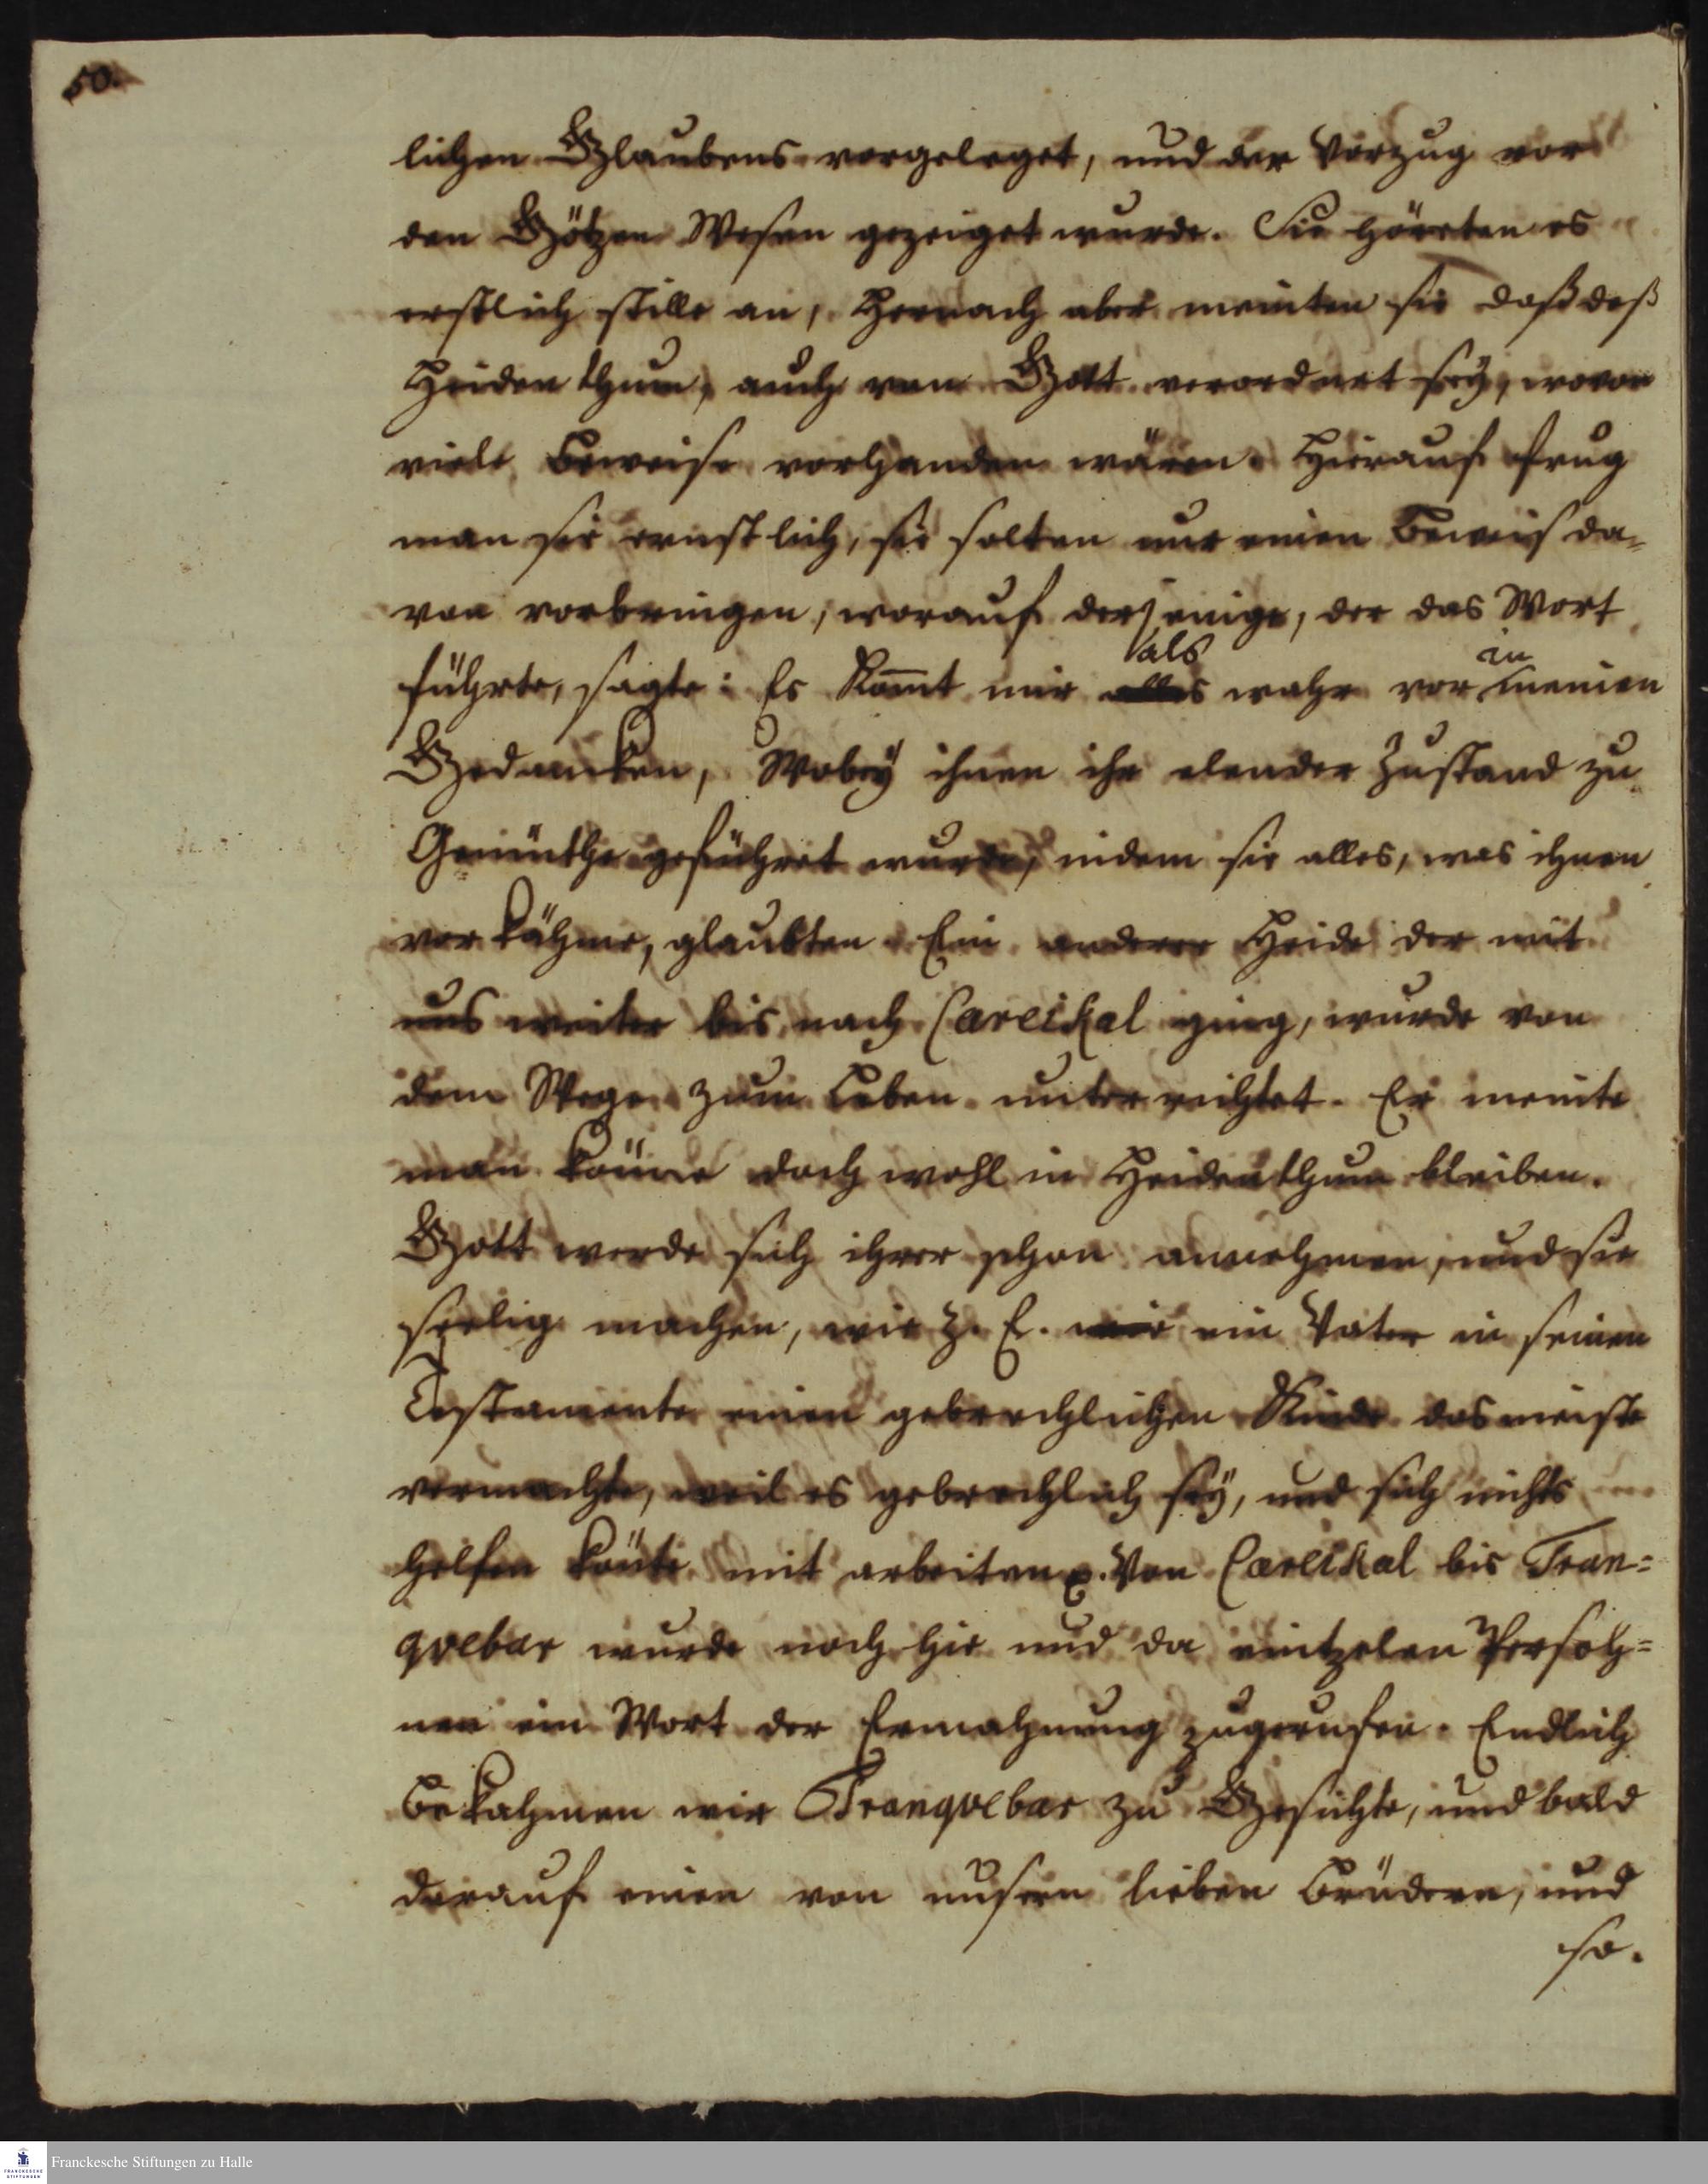 50.
lichen Glaubens vorgeleget, und der Vorzug vor
den Götzen Wesen gezeiget wurde. Sie höreten es
erstlich stille an, Hernach aber meinten sie daß daß
Heidenthum, auch von Gott verordnet sey, wovon
viele Beweise vorhanden wären. Hierauf frug
man sie ernstlich, sie solten nur einen Beweis da-
von vorbringen, worauf derjenige, der das Wort
führte, sagte: Es Kom̄t mir als wahr vor in meinen
Gedancken, Wobey ihnen ihr elender Zustand zu
Gemüthe geführet wurde, indem sie alles, was ihnen
vor kähme, glaubten. Ein anderer Heide der mit
uns weiter bis nach Careikal ging, wurde von
dem Wege zum Leben unterrichtet. Er meinte
man könne doch wohl in Heidenthum bleiben.
Gott werde sich ihrer schon annehmen, und sie
seelig machen, wie z. E. ein Vater in seinen
Testamente einen gebrechlichen Kinde das meiste
vermachte, weil es gebrechlich sey, und sich nichts
helfen könte mit arbeiten p. Von Careikal bis Tran=
qvebar wurde noch hie und da eintzelen Persoh=
nen ein Wort der Ermahnung zugerufen. Endlich
Bekahmen wir Tranqvebar zu Gesichte, und bald
darauf einen von unsern lieben Brüdern, und
so.
Franckesche Stiftungen zu Halle